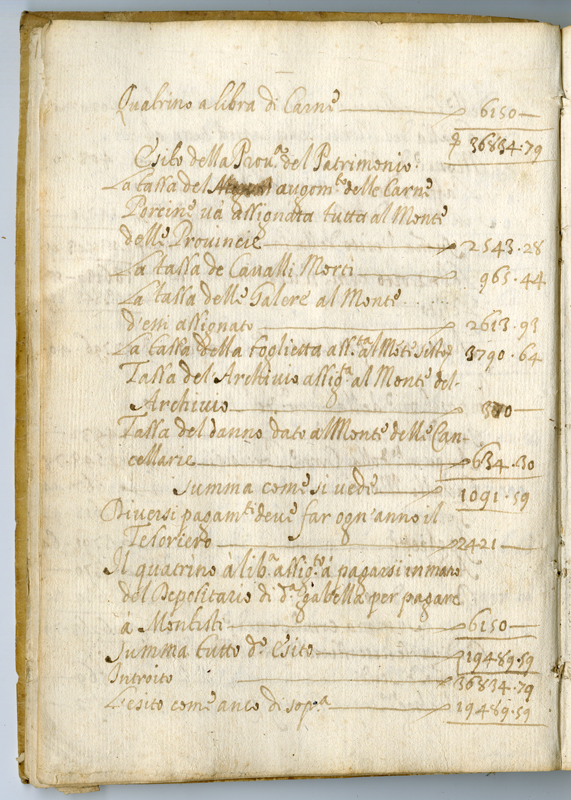 Quatrino a libra di Carne 6150
36834.79
Esito della Prov.a del Patrimonio
La tassa del augom.to delle Carne
Porcine và assignata tutta al Monte
delle Provincie 2543.28
La tassa de Cavalli Morti 965.44
La tassa delle Galere al Monte
d'essi assignato 2613.93
La tassa della foglietta ass.ta al Mote sisto 3790.64
Tassa del Archivio assig.a al Monte del
Archivio 370
Tassa del danno dato al Monte delle Can-
cellarie 634.30
Summa come si vede 1091.59
Diversi pagam.ti deve far ogn'anno il
Tesoriero 2421
Il quatrino à lib.a assig.to à pagarsi in mano
del Depositario di d.a gabella per pagare
à Montisti 6150
Summa tutto d.o Esito 19489.59
Introito 36834.79
L'esito come anco di sop.a 19489.59